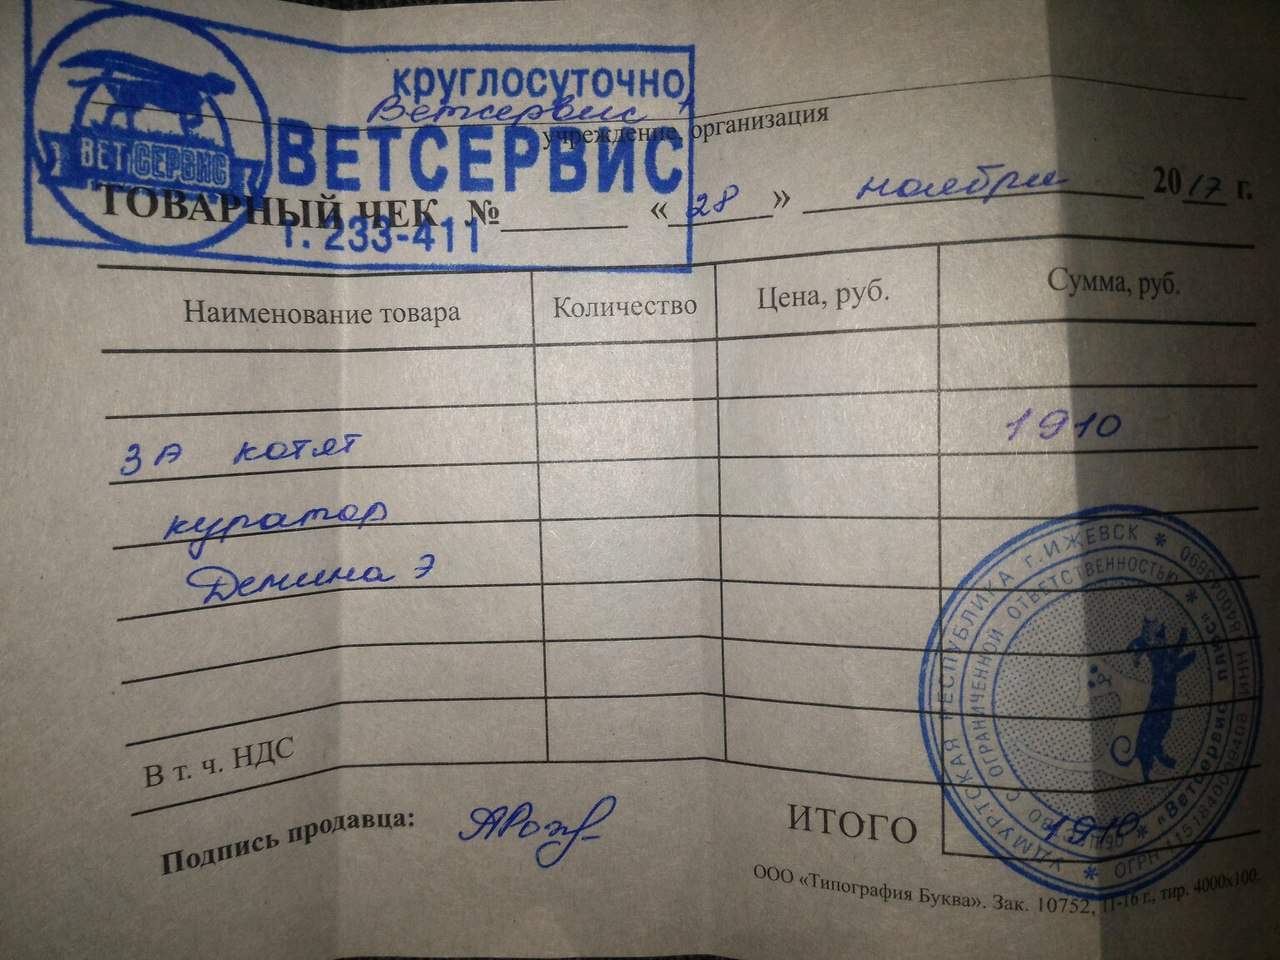 круглосуточно
Ветсервис +
учреждение, организация
ВЕТ СЕРВИС
ВЕТСЕРВИС
ТОВАРНЫЙ ЧЕК № « 28 » ноября 2017 г.
т. 233-411
Наименование товара Количество Цена, руб. Сумма, руб.
За котят 1910
куратор
Демина Э
В т. ч. НДС
Подпись продавца:
ИТОГО 1910
УДМУРТСКАЯ РЕСПУБЛИКА г. ИЖЕВСК
ОБЩЕСТВО С ОГРАНИЧЕННОЙ ОТВЕТСТВЕННОСТЬЮ
«Ветсервис плюс»
ОГРН ИНН
ООО «Типография Буква». Зак. 10752, 11-16 г., тир. 4000х100.